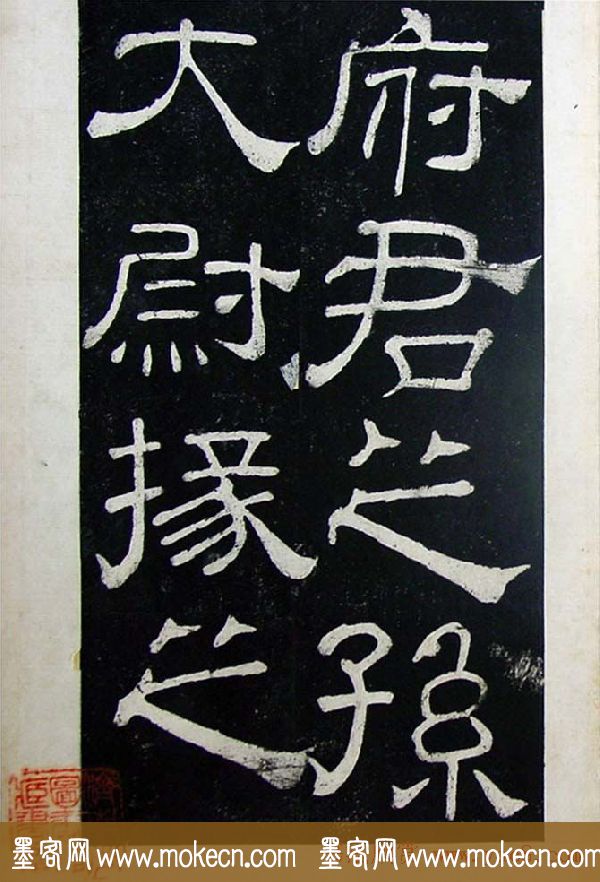 府君之孫
大尉掾之
墨客网 www.mokecn.com 墨客网 www.mokecn.com